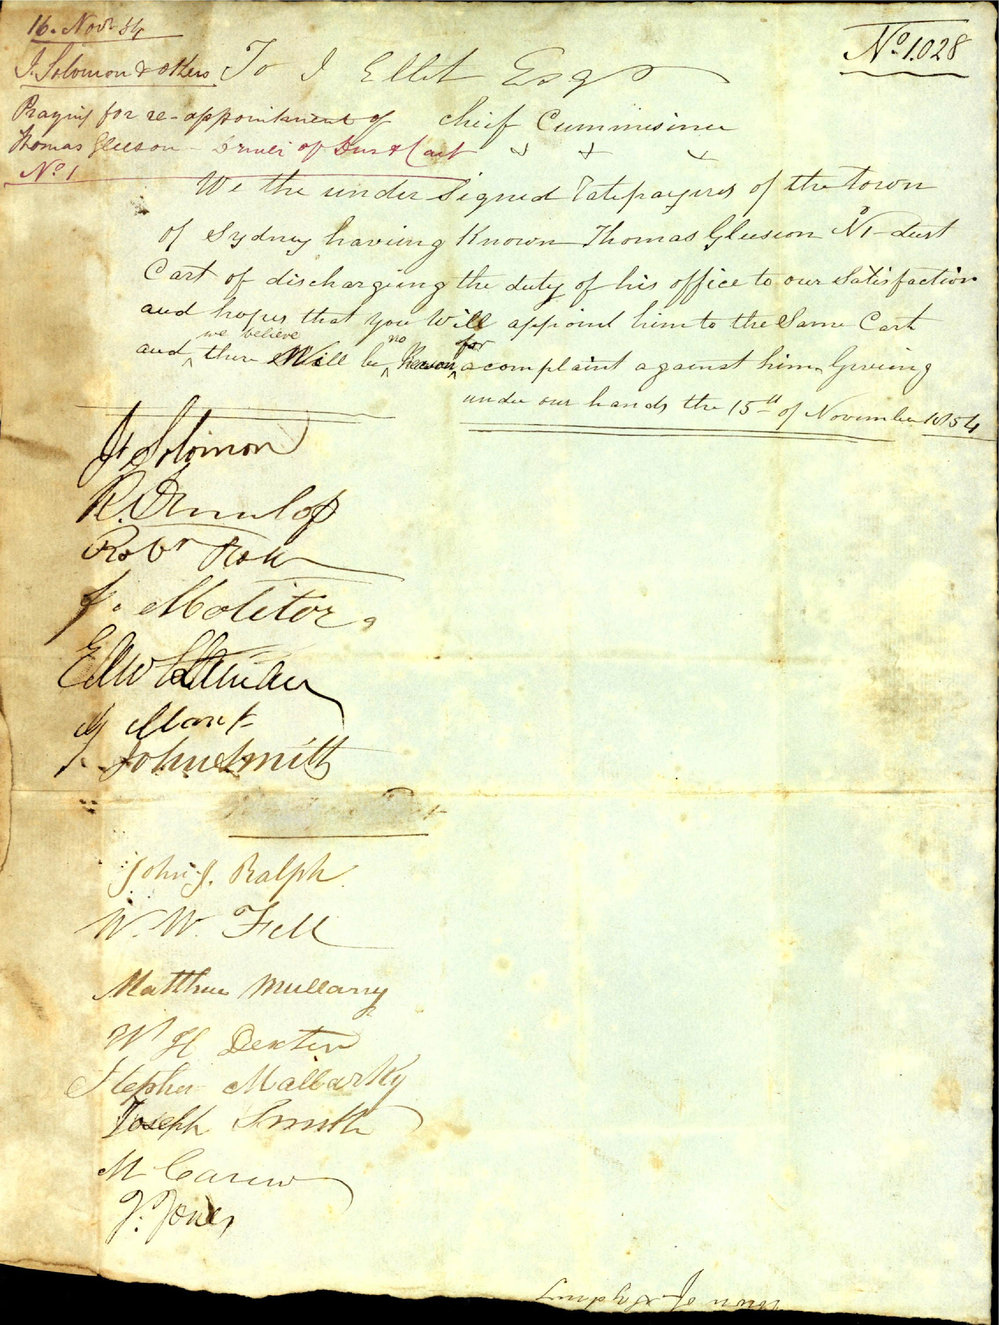 16. Novr 54
No. 1028
J. Solomon & others
Praying for re-appointment of
Thomas Gleeson - Driver of Dust Cart
No 1
To J Ellit Esqr
Cheif Cummisiner
We the under Signed Ratepayers of the town
of Sydney haveing Known Thomas Gleeson No 1 dust
Cart of dischargeing the duty of his office to our Satisfaction
and hopes that you Will appoint him to the Same Cart
and we believe there Will be no Reason for a complaint against him Giveing
under our hands the 15th of November 1854
J. Solomon
R. Dunlop
Robt
J. Molitor
Edw
Mark
John Smith
John J. Ralph
W. W. Fell
Matthew Mullany
W H Dexter
Stephen Mallarky
Joseph Smith
M Carew
J. Jones
town of Sydney